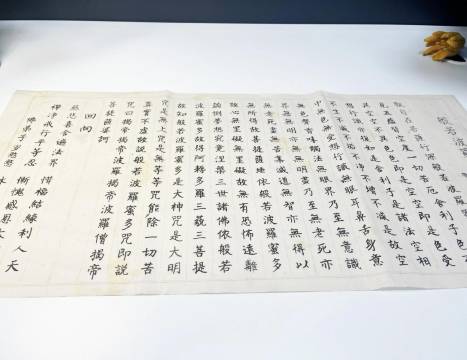 見五蘊皆空度一切苦厄舍利子色不
異空空不異色色即是空空即是色受
想行識亦復如是舍利子是諸法空相
不生不滅不垢不淨不增不減是故空
中無色無受想行識無眼耳鼻舌身意
無色聲香味觸法無眼界乃至無意識
界無無明亦無無明盡乃至無老死亦
無老死盡無苦集滅道無智亦無得以
無所得故菩提薩埵依般若波羅蜜多
故心無罣礙無罣礙故無有恐怖遠離
顛倒夢想究竟涅槃三世諸佛依般若
波羅蜜多故得阿耨多羅三藐三菩提
故知般若波羅蜜多是大神咒是大明
咒是無上咒是無等等咒能除一切苦
真實不虛故說般若波羅蜜多咒即說
咒曰揭帝揭帝波羅揭帝波羅僧揭帝
菩提薩婆訶
回向
慈悲喜舍遍法界 惜福結緣利人天
禪淨戒行平等忍 慚愧感恩大
佛弟子